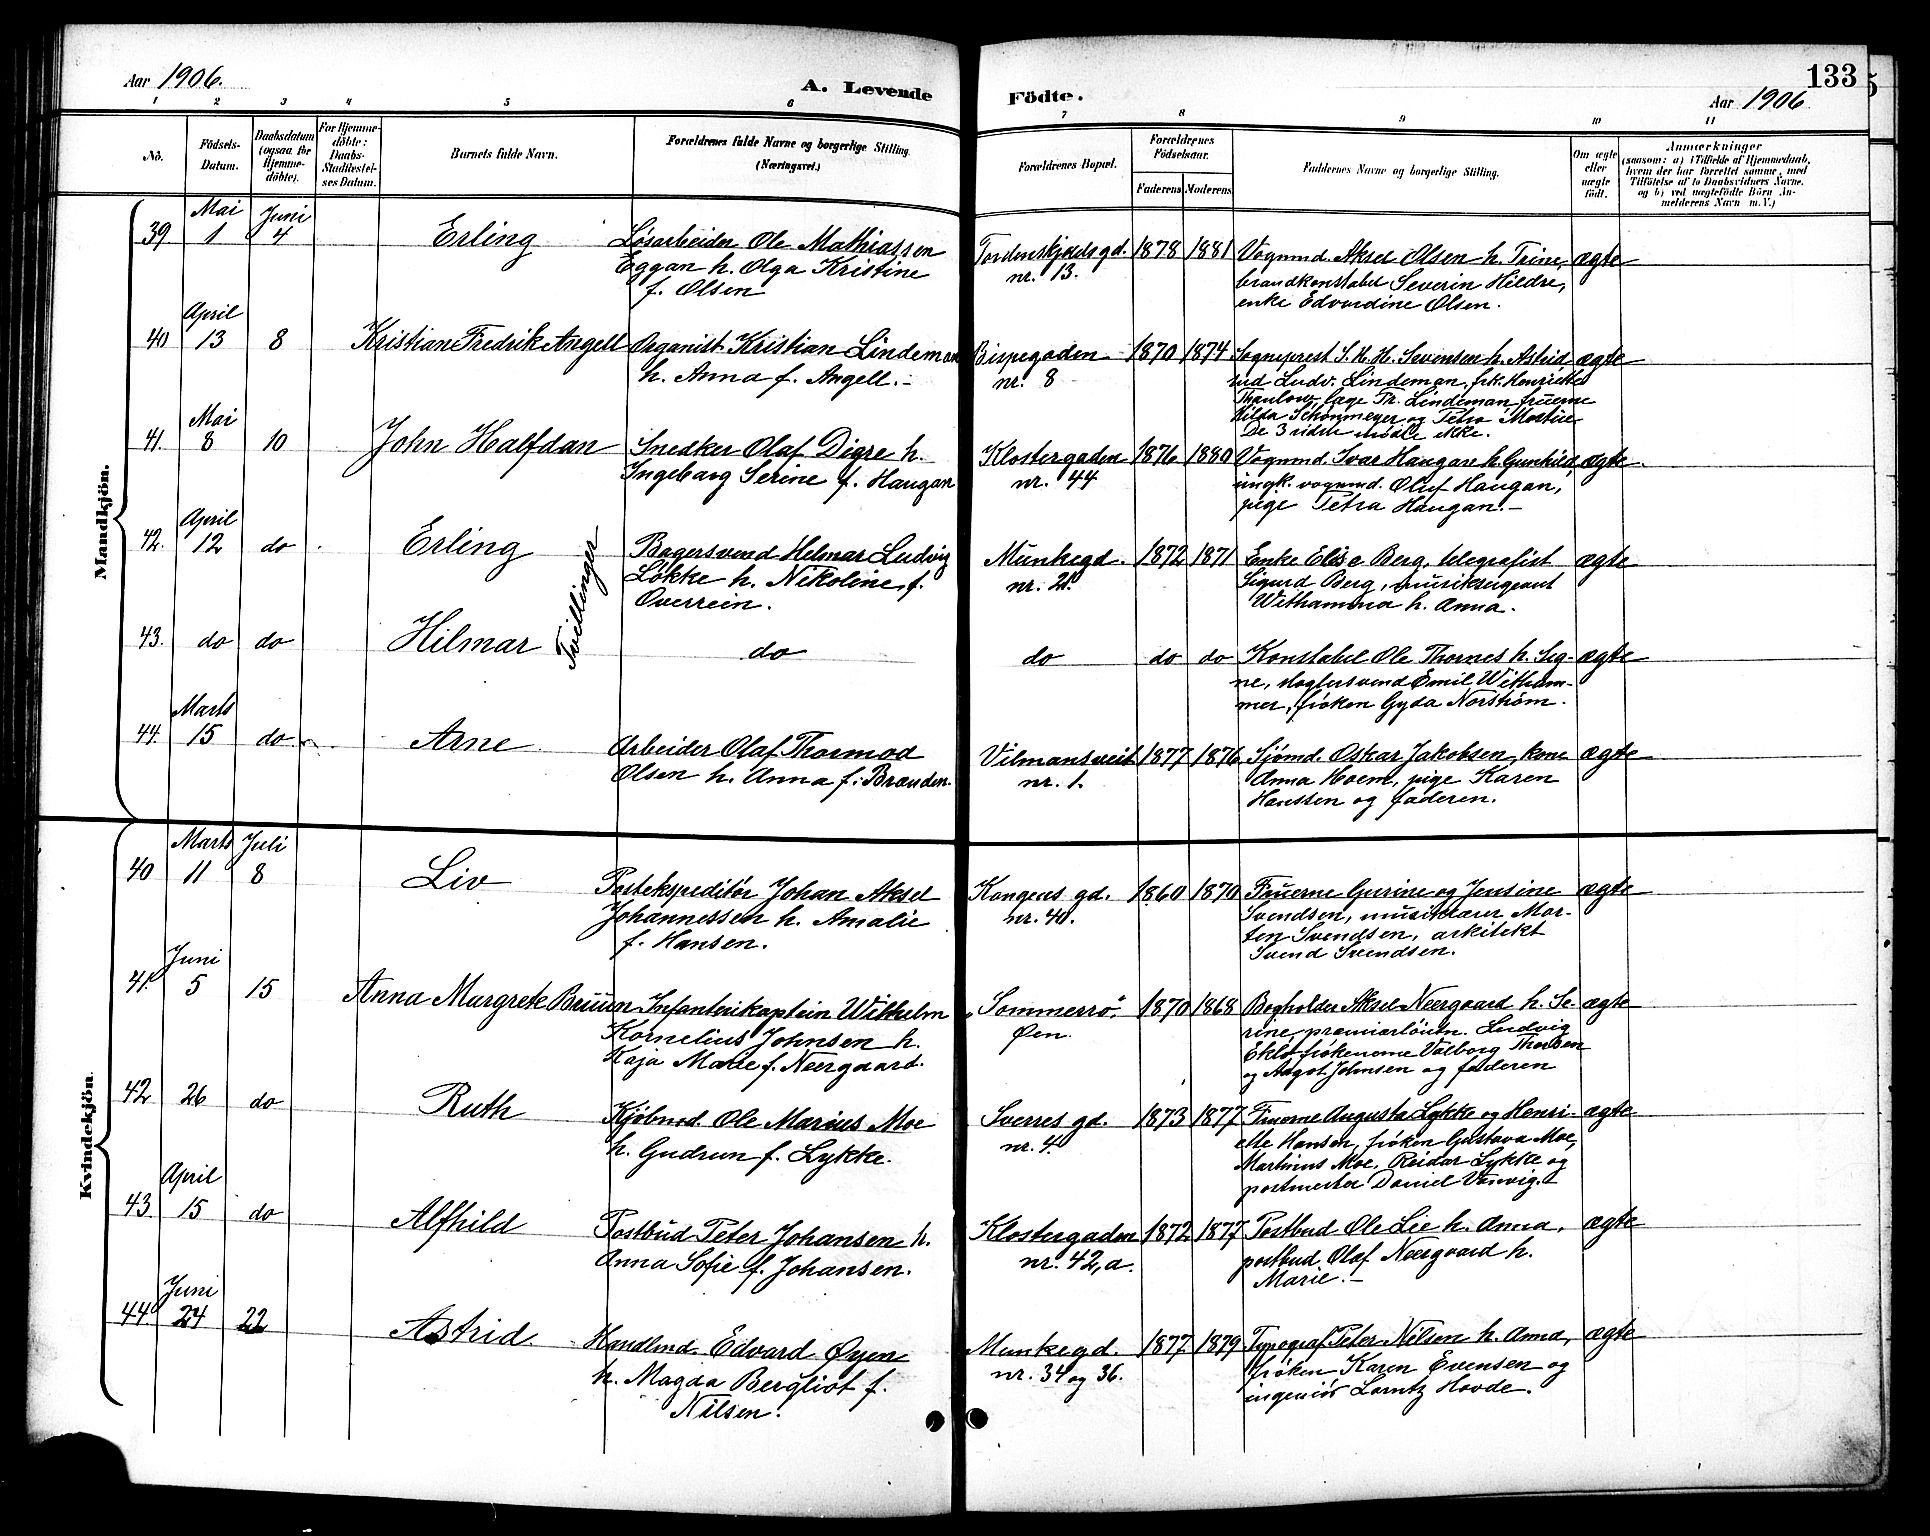 Aar 1906.
A. Levende
Födte.
133
Aar 1906
1 2 3 4 5 6 7 8 9 10 11
No.
Födsels-
Datum.
Daabsdatum
(ogsaa for
Hjemme-
döbte).
For Hjemme-
döbte:
Daabs-
Stadfæstel-
ses Datum.
Barnets fulde Navn.
Forældrenes fulde Navne og borgerlige Stilling.
(Næringsvei.)
Forældrenes Bopæl.
Forældrenes
Födselsaar.
Faderens
Moderens
Faddernes Navne og borgerlige Stilling.
Om ægte
eller
uægte
födt.
Anmærkninger
(saasom: a) i Tilfælde af Hjemmedaab,
hvem der har forrettet samme, med
Tilföielse af to Daabsvidners Navne,
og b) ved uægtefödte Börn An-
melderens Navn m. V.)
Mandkjön.
39 Mai 1 Juni 4 Erling
Løsarbeider Ole Mathiassen
Eggan h. Olga Kristine
f. Olsen
Tordenskjoldsgd.
nr. 13.
1878 1881
Vognmd. Aksel Olsen h. Trine,
brandkonstabel Severin Hildre,
enke Edvardine Olsen.
ægte
40 April 13 8 Kristian Fredrik Angell
Organist Kristian Lindeman
h. Anna f. Angell.
Bispegaden
nr. 8
1870 1874
Sogneprest S. H. H. Sevensen h. Astrid
Ludv. Lindeman, frk. Henriette
Thaulow, læge Th. Lindeman, fruerne
Hilda Schönmeyer og Petra
De 3 sidste mødte ikke.
ægte
41. Mai 8 10 John Halfdan
Snedker Olaf Digre h.
Ingeborg Serine f. Haugan
Klostergaden
nr. 44
1876 1880
Vognmd. Ivar Haugan h. Gunhild,
ungk. vognmd. Oluf Haugan,
pige Petra Haugan.
ægte.
42. April 12 do Erling
Bagersvend Hilmar Ludvig
Løkke h. Nikoline f.
Overrein.
Tvillinger
Munkegd.
nr. 21.
1872 1871
Enke Elise Berg, telegrafist
Sigurd Berg, musiksergeant
Withammer h. Anna.
ægte
43. do do Hilmar
do
do
do do
Konstabel Ole Thornes h. Sig-
ne, slagtersvend Emil Witham-
mer, frøken Gyda Norström.
ægte
44. Marts 15 do Arne
Arbeider Olaf Thormod
Olsen h. Anna f. Brænden.
Vilmansveit
nr. 1.
1877 1876
Sjömd. Oskar Jakobsen, kone
Anna Hoem, pige Karen
Hanssen og faderen.
ægte
Kvindekjön.
40 Marts 11 Juli 8 Liv
Postekspeditör Johan Aksel
Johannessen h. Amalie
f. Hansen.
Kongens gd.
nr. 40.
1860 1870
Fruerne Gurine og Jensine
Svendsen, musiklærer Mor-
ten Svendsen, arkitekt
Svend Svendsen.
ægte
41. Juni 5 15 Anna Margrete Bruun
Infanterikaptein Wilhelm
Kornelius Johnsen h.
Kaja Marie f. Neergaard.
"Sommerro"
Øen.
1870 1868
Bogholder Aksel Neergaard h. Se-
rine, premierlöitn. Ludvig
frøkenerne Valborg Thorsen
og Aagot Johnsen og faderen
ægte
42 26 do Ruth
Kjöbmd. Ole Marius Moe
h. Gudrun f. Lykke.
Sverres gd.
nr. 4.
1873 1877
Fruerne Augusta Lykke og Henri-
ette Hansen, frøken Gustava Moe,
Martinus Moe, Reidar Lykke og
postmester Daniel
ægte
43. April 15 do Alfhild
Postbud Peter Johansen h.
Anna Sofie f. Johansen.
Klostergaden
nr. 42, a.
1872 1877
Postbud Ole Lie h. Anna,
postbud Olaf Neergaard h.
Marie.
ægte
44 Juni 24 22 Astrid
Handlmd. Edvard Øyen
h. Magda Bergliot f.
Nilsen.
Munkegd.
nr. 34 og 36.
1877 1879
Typograf Peter Nilsen h. Anna,
frøken Karen Evensen og
ingeniör Lorntz Hovde.
ægte